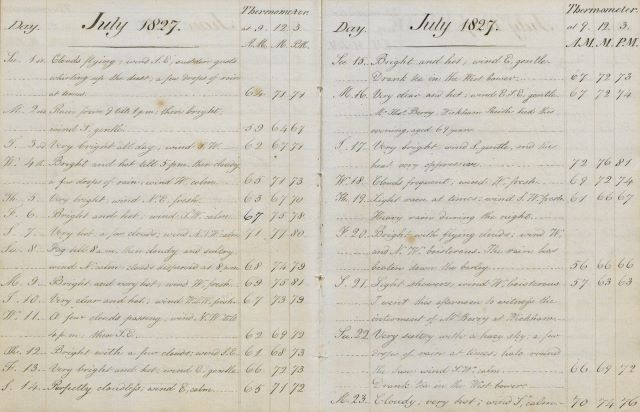 Thermometer
Day. July 1827. at 9. 12. 3.
A.M. M. P.M.
Su. 1st Clouds flying; wind S.E., sudden gusts
whirling up the dust, a few drops of rain
at times 64 71 71
M. 2nd Rain from 9 till 1 p.m; then bright,
wind S. gentle. 59 64 67
T. 3rd Very bright all day; wind W. 62 67 71
W. 4th Bright and hot till 5 p.m. then cloudy
a few drops of rain; wind W. calm. 65 71 73
Th. 5. Very bright, wind N.E. fresh. 63 67 70
F. 6. Bright and hot, wind S.W. calm. 67 75 78
S. 7. Very hot, a few clouds; wind N.W. calm 71 77 80
Su. 8. Fog till 8 a.m. then cloudy and sultry
wind N. calm; clouds dispersed at 8 p.m. 68 74 79
M. 9. Bright and very hot; wind W. fresh. 69 75 81
T. 10. Very clear and hot; wind W. fresh. 67 73 79
W. 11. A few clouds passing, wind N.W. till
4 p.m; then S.E. 62 69 72
Th. 12. Bright with a few clouds; wind S.E. 61 68 73
F. 13. Very bright and hot, wind E. gentle 66 72 73
S. 14. Perfectly cloudless, wind E. calm. 65 71 72
Thermometer
Day. July 1827. at 9. 12. 3.
A.M. M. P.M.
Su. 15. Bright and hot, wind E. gentle.
Drank tea in the West bower. 67 72 73
M. 16. Very clear and hot; wind E.S.E. gentle 67 72 74
Mr. Berry, Wickham died this
evening, aged 69 years.
T. 17. Very bright, wind S. gentle, and the
heat very oppressive. 72 76 81
W. 18. Clouds frequent, wind W. fresh. 69 72 74
Th. 19. Light rain at times; wind S.W. fresh 61 66 67
Heavy rain during the night.
F. 20. Bright with flying clouds; wind W.
and N.W. boisterous. The rain has
beaten down the barley. 56 66 66
S. 21. Light showers, wind W. boisterous 57 63 63
I went this afternoon to witness the
interment of Mr Berry at Wickham.
Su. 22. Very sultry with a hazy sky: a few
drops of rain at times, halo round
the Sun, wind S.W. calm. 66 69 72
Drank tea in the West bower.
M. 23. Cloudy, very hot; wind S. calm. 70 74 76